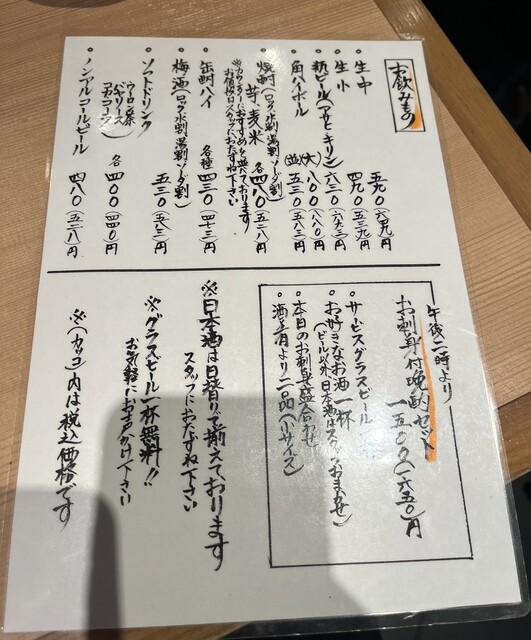 お飲みもの
生中 五九〇(六四九)円
生小 四九〇(五三九)円
瓶ビール(アサヒ・キリン) 六三〇(六九三)円
角ハイボール (大) 八〇〇(八八〇)円
(並) 五三〇(五八三)円
焼酎(ロック 水割 湯割 ソーダ割)
芋 麦 米 各 四八〇(五二八)円
※カウンターにおすすめを並べております
お値段はスタッフにおたずね下さい
缶酎ハイ 各種 四三〇(四七三)円
梅酒(ロック 水割 湯割 ソーダ割) 五三〇(五八三)円
ソフトドリンク
ウーロン茶
ジンジャーエール
コカ・コーラ
各 四〇〇(四四〇)円
ノンアルコールビール 四八〇(五二八)円
午後二時より
お刺身付晩酌セット
一五〇〇(一六五〇)円
サービスグラスビール
お好きなお酒一杯
(ビール以外 日本酒はスタッフおまかせ)
本日のお刺身盛合わせ
酒肴より二品(小サイズ)
※日本酒は日替りで揃えております
スタッフにおたずね下さい
※グラスビール一杯無料!!
お気軽にお声かけ下さい
※(カッコ)内は税込価格です